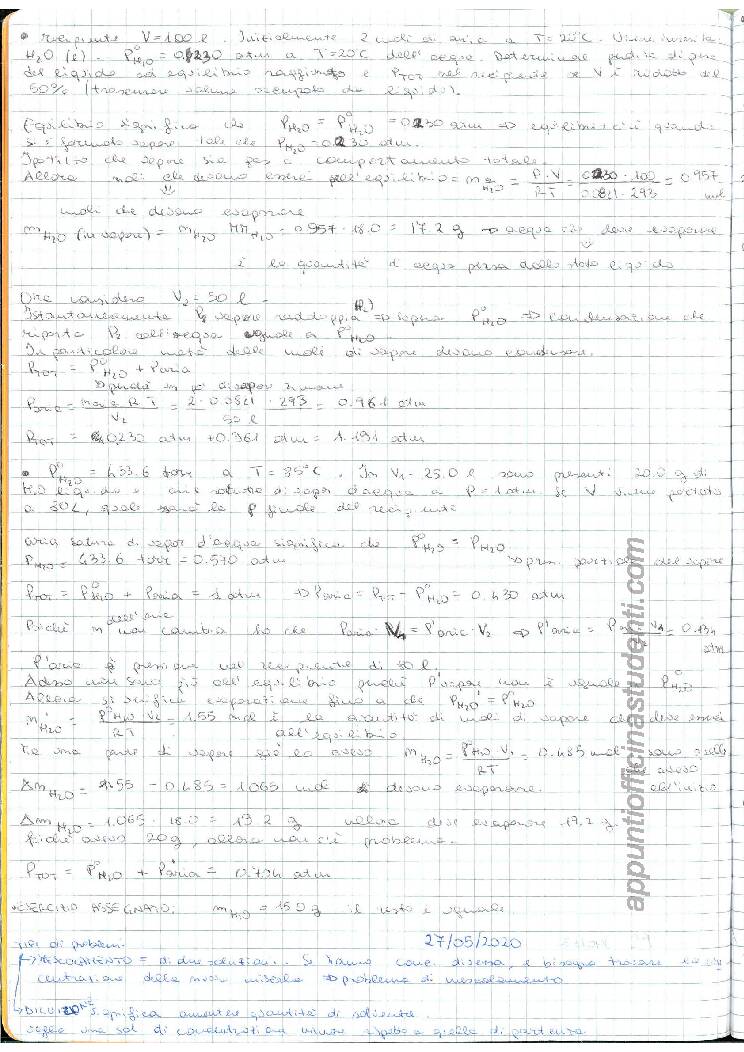 • recipiente V=100 l. Inizialmente 2 moli di aria a T=20°C. Viene inserita
H₂O (l). P°H₂O = 0.0230 atm a T=20°C dell'acqua. Determinare perdita di peso
del liquido ad equilibrio raggiunto e PTOT nel recipiente se V è ridotto del
50% (trascurare volume occupato da liquido).
Equilibrio significa che PH₂O = P°H₂O = 0.0230 atm ⇒ equilibrio c'è quando
si è formato vapore tale che PH₂O = 0.0230 atm.
Ipotizzo che vapore sia gas a comportamento
Allora moli che devono esserci all'equilibrio = nH₂O = P·V/RT = 0.0230·100/0.0821·293 = 0.957 mol
moli che devono evaporare
mH₂O (in vapore) = nH₂O MMH₂O = 0.957·18.0 = 17.2 g ⇒ acqua che deve evaporare
è la quantità di acqua persa dallo stato liquido
Ora considero V₂ = 50 l
Istantaneamente P₂ vapore raddoppia (P₂) ⇒ supera P°H₂O ⇒ condensazione che
riporta P₂ dell'acqua uguale a P°H₂O
In particolare metà delle moli di vapore devono condensare.
PTOT = P°H₂O + Paria
Paria = naria R T/V₂ = 2·0.0821·293/50 l = 0.961 atm
PTOT = 0.0230 atm + 0.961 atm = 1.191 atm
• P°H₂O = 433.6 torr a T=85°C. In V₁ = 25.0 l sono presenti 20.0 g di
H₂O liquido e aria satura di vapor d'acqua a P=1 atm. Se V viene portato
a 80L, quale sarà la P finale del recipiente
aria satura di vapor d'acqua significa che P°H₂O = PH₂O
press. parziale del vapore
PH₂O = 433.6 torr = 0.570 atm
PTOT = P°H₂O + Paria = 1 atm ⇒ Paria = PTOT - P°H₂O = 0.430 atm
Poiché n dell'aria non cambia so che Paria V₁ = P'aria·V₂ ⇒ P'aria = Paria V₁/V₂ = 0.134 atm
P'aria è pressione nel recipiente di 80 l.
Adesso non sono più all'equilibrio perché P'vapore non è uguale P°H₂O
Allora si verifica evaporazione fino a che PH₂O' = P°H₂O
n'H₂O = P°H₂O V₂/RT = 1.55 mol è la quantità di moli di vapore che deve esserci
all'equilibrio
Ma una parte di vapore già la avevo nH₂O = P°H₂O V₁/RT = 0.485 mol sono quelle
che avevo
all'inizio
ΔnH₂O = 1.55 - 0.485 = 1.065 mol devono evaporare.
ΔmH₂O = 1.065·18.0 = 19.2 g allora deve evaporare 19.2 g.
Poiché avevo 20g, allora non c'è problema.
PTOT = P°H₂O + P'aria = 0.704 atm
• ESERCIZIO ASSEGNATO: mH₂O = 15.0 g il resto è uguale
Tipi di problemi 27/05/2020
→ MESCOLAMENTO = di due soluzioni. Se hanno conc. diversa, e bisogna trovare la con
centrazione della nuova miscela ⇒ problema di mescolamento
→ DILUIZIONE significa aumentare quantità di solvente.
voglio una sol di concentrazione minore rispetto a quella di partenza.
appuntiofficinastudenti.com